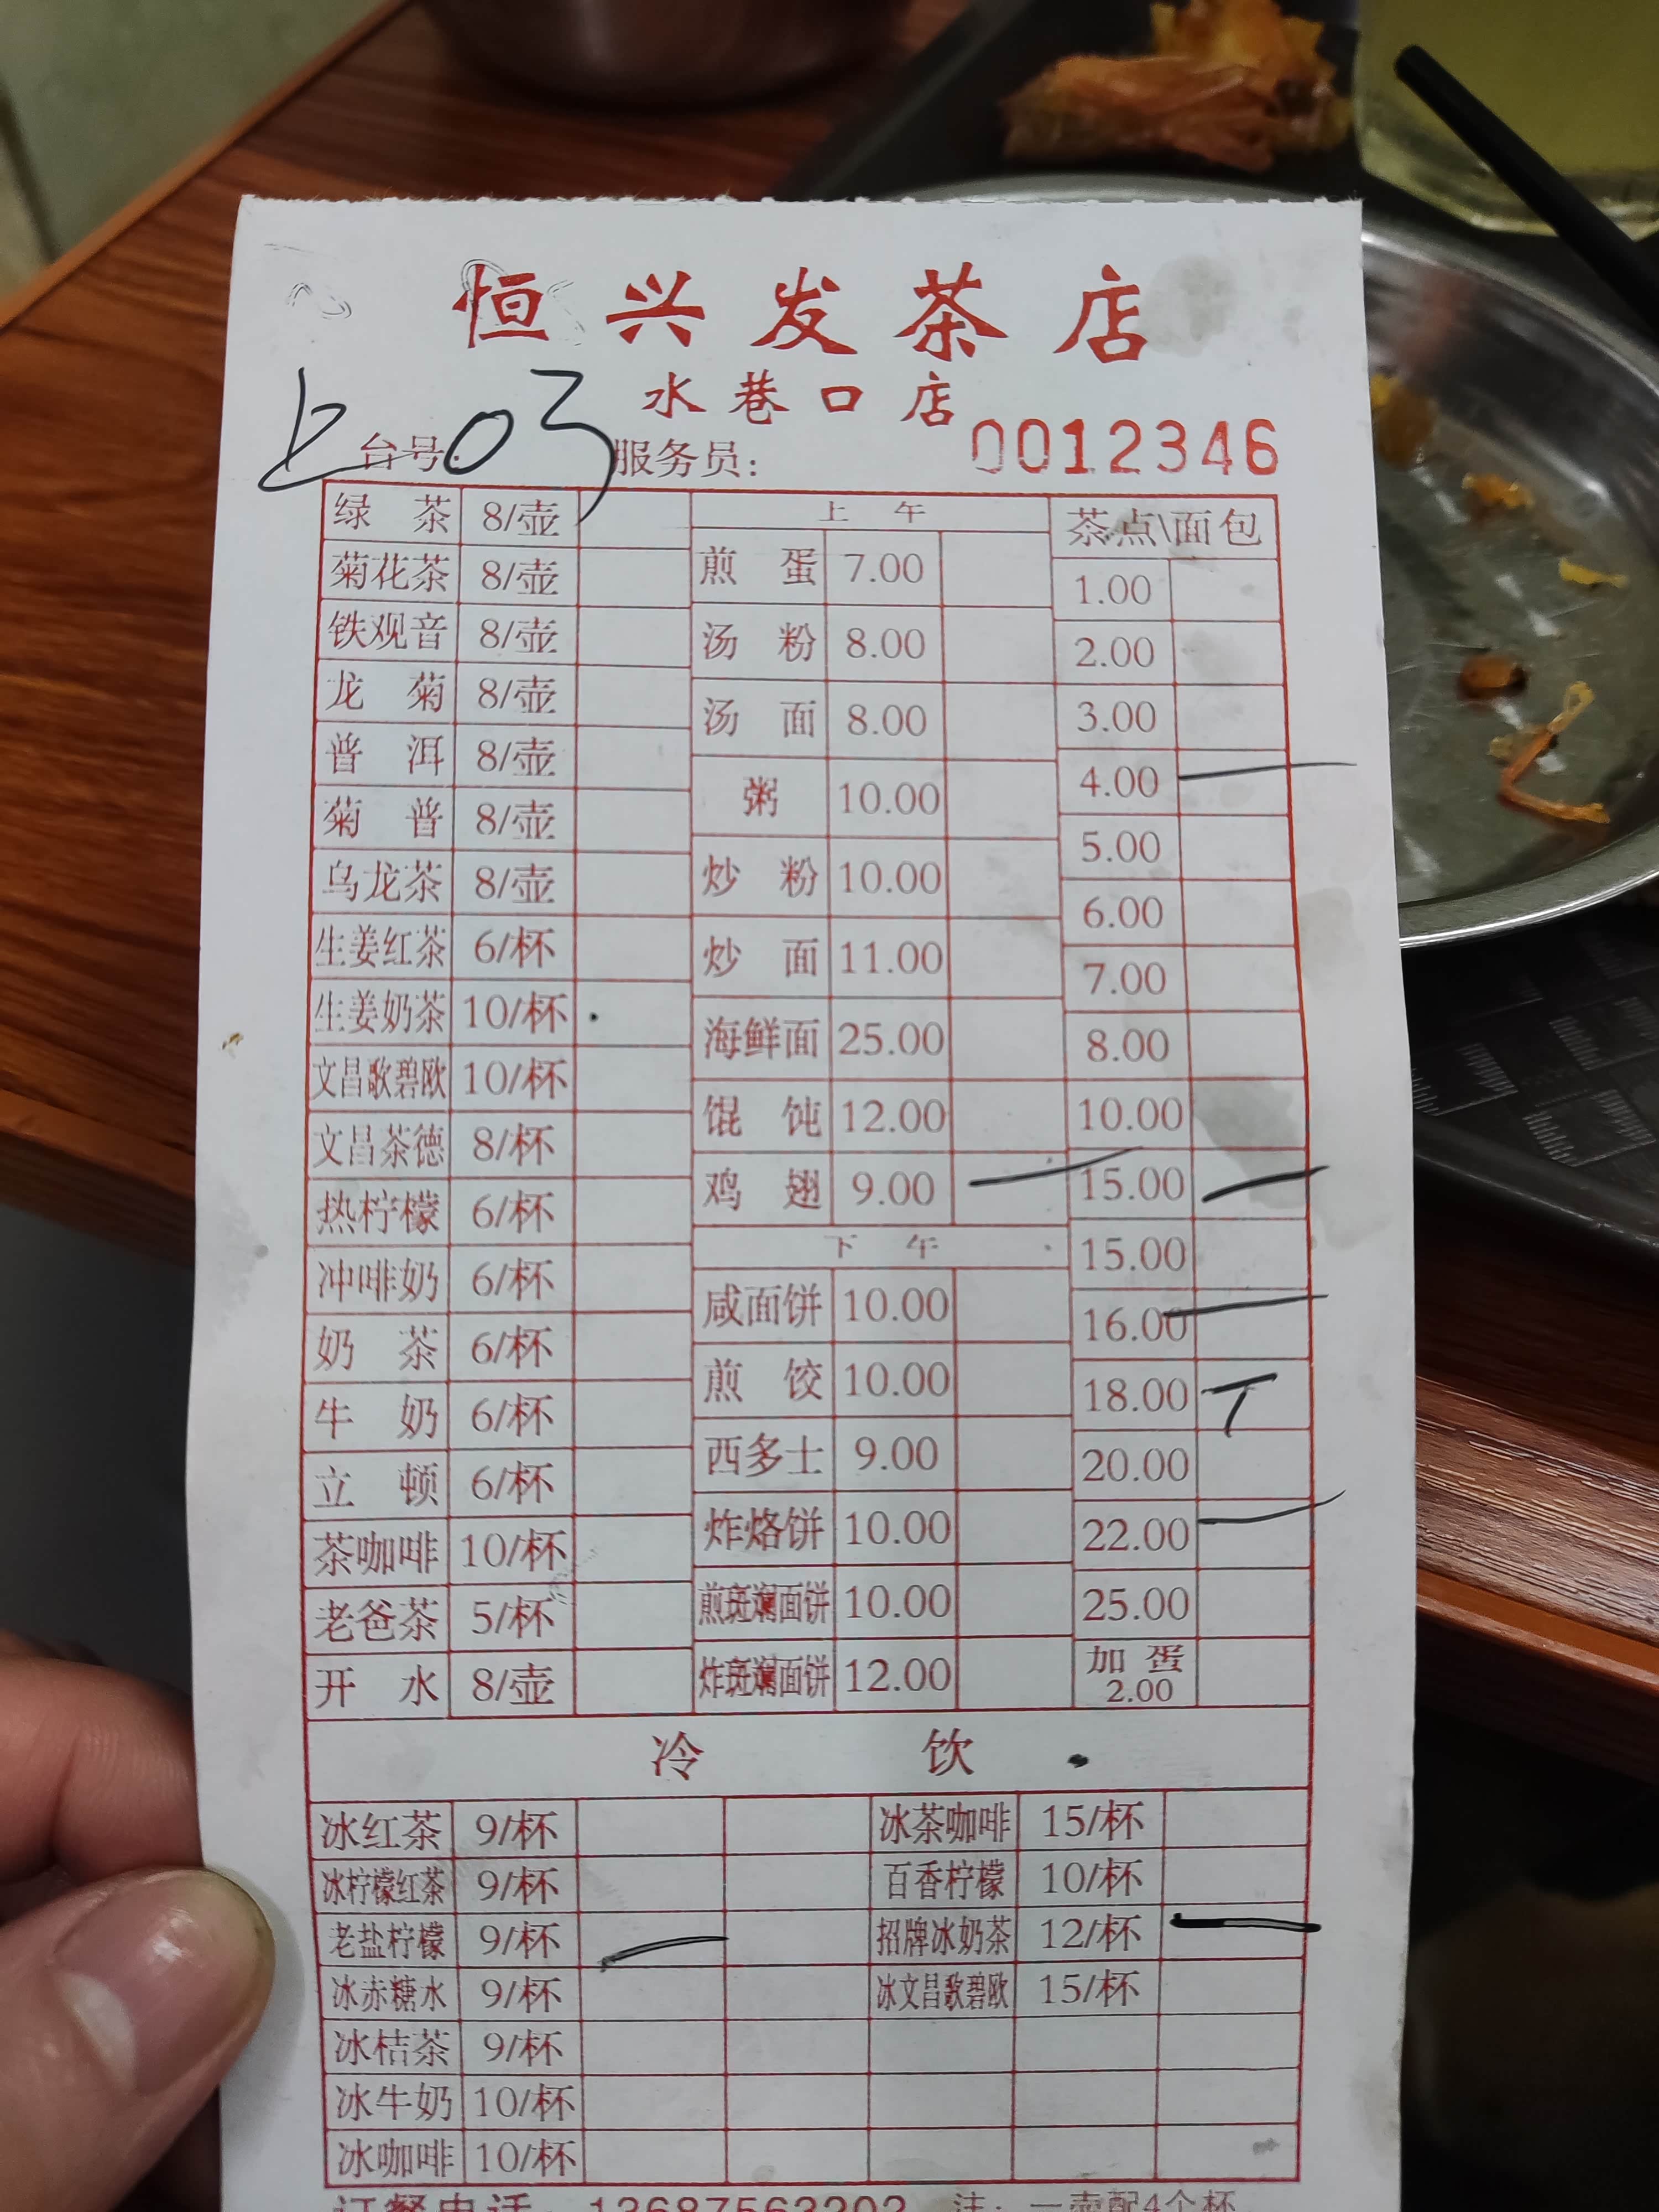 恒兴发茶店
水巷口店
上 台号: 03 服务员: 0012346
绿茶 8/壶 上午 茶点\面包
菊花茶 8/壶 煎蛋 7.00 1.00
铁观音 8/壶 汤粉 8.00 2.00
龙菊 8/壶 汤面 8.00 3.00
普洱 8/壶 粥 10.00 4.00 一
菊普 8/壶 炒粉 10.00 5.00
乌龙茶 8/壶 炒面 11.00 6.00
生姜红茶 6/杯 海鲜面 25.00 7.00
生姜奶茶 10/杯 馄饨 12.00 8.00
文昌歌碧欧 10/杯 鸡翅 9.00 一 10.00
文昌茶德 8/杯 下午 15.00 一
热柠檬 6/杯 咸面饼 10.00 15.00
冲啡奶 6/杯 煎饺 10.00 16.00 一
奶茶 6/杯 西多士 9.00 18.00 T
牛奶 6/杯 炸烙饼 10.00 20.00
立顿 6/杯 煎斑斓面饼 10.00 22.00 一
茶咖啡 10/杯 炸斑斓面饼 12.00 25.00
老爸茶 5/杯 加蛋 2.00
开水 8/壶
冷饮
冰红茶 9/杯 冰茶咖啡 15/杯
冰柠檬红茶 9/杯 百香柠檬 10/杯
老盐柠檬 9/杯 一 招牌冰奶茶 12/杯 一
冰赤糖水 9/杯 冰文昌歌碧欧 15/杯
冰桔茶 9/杯
冰牛奶 10/杯
冰咖啡 10/杯
订餐电话: 13687563202 注: 一壶配4个杯